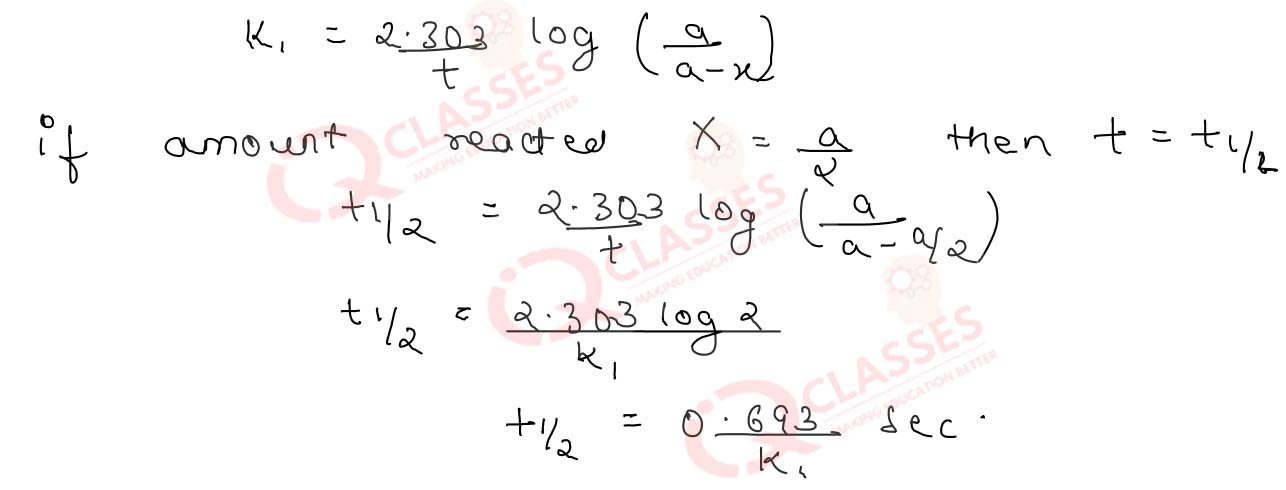 K₁ = 2.303/t log (a/a-x)
if amount reacted X = a/2 then t = t1/2
t1/2 = 2.303/t log (a/a-a/2)
t1/2 = 2.303 log 2/K₁
t1/2 = 0.693/K₁ sec.
Q CLASSES
MAKING EDUCATION BETTER
Q CLASSES
MAKING EDUCATION BETTER
Q CLASSES
MAKING EDUCATION BETTER